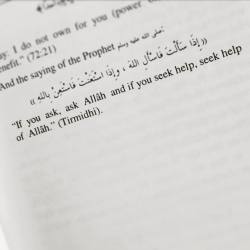 ay: I do not own for you (power
enefit." (72:21)
And the saying of the Prophet صلى الله عليه وسلم:
«إِذَا سَأَلْتَ فَاسْأَلِ اللهَ ، وَإِذَا اسْتَعَنْتَ فَاسْتَعِنْ بِاللهِ»
"If you ask, ask Allâh and if you seek help, seek help
of Allâh." (Tirmidhi).